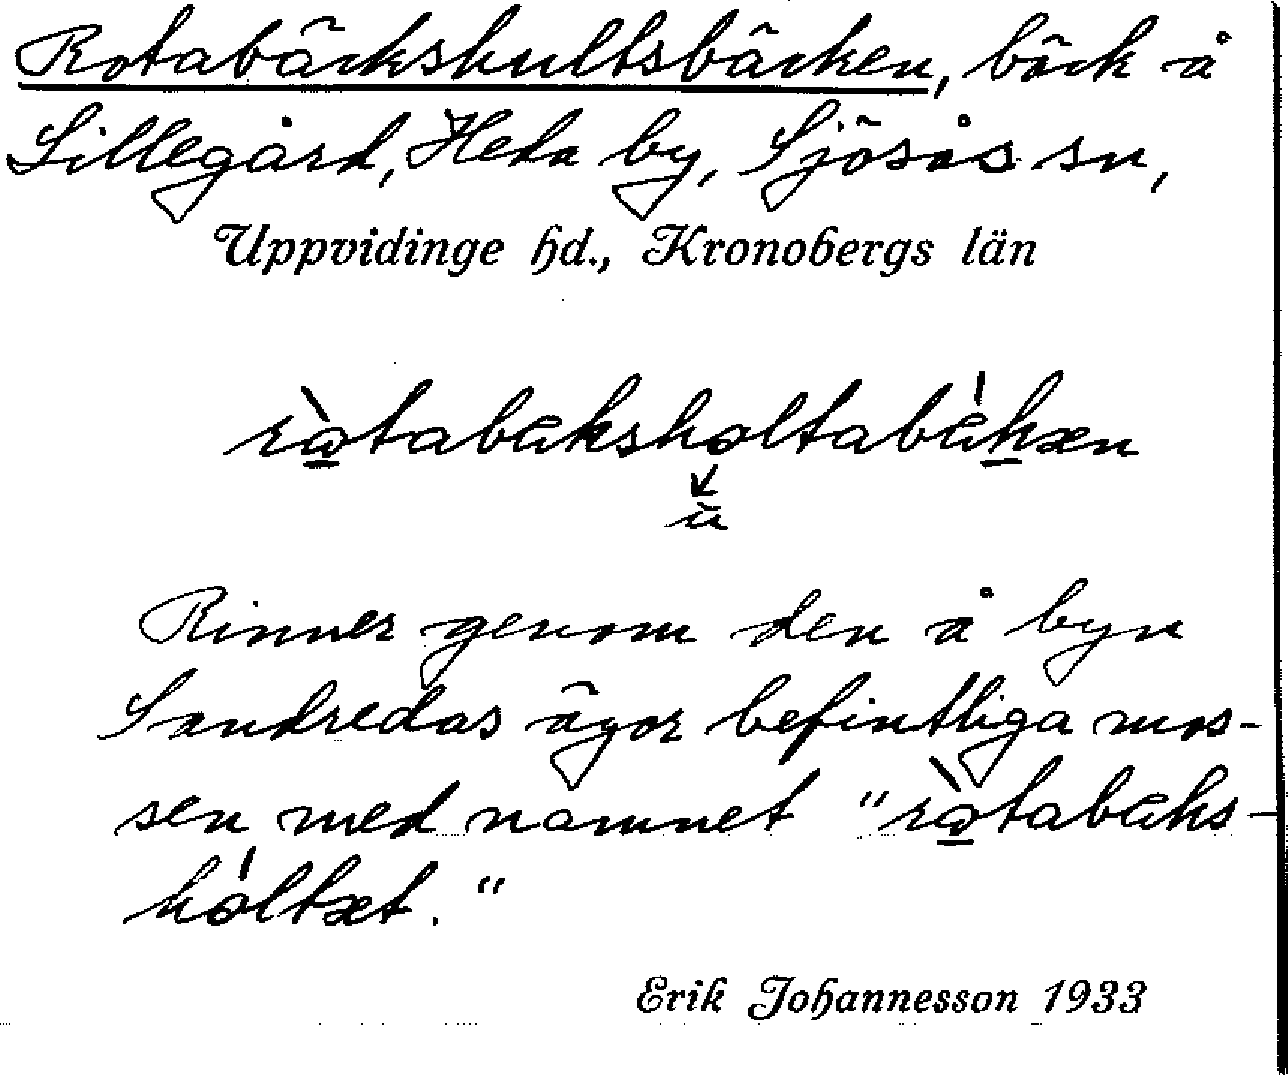 Rotabäckshultsbäcken, bäck å
Lillegård, Heda by, Sjösås sn,
Uppvidinge hd., Kronobergs län
ròtabäksholtabä́kæn
ù
Rinner genom den å byn
Sandredas ägor befintliga mos-
sen med namnet "ròtabäks-
hóltæt."
Erik Johannesson 1933